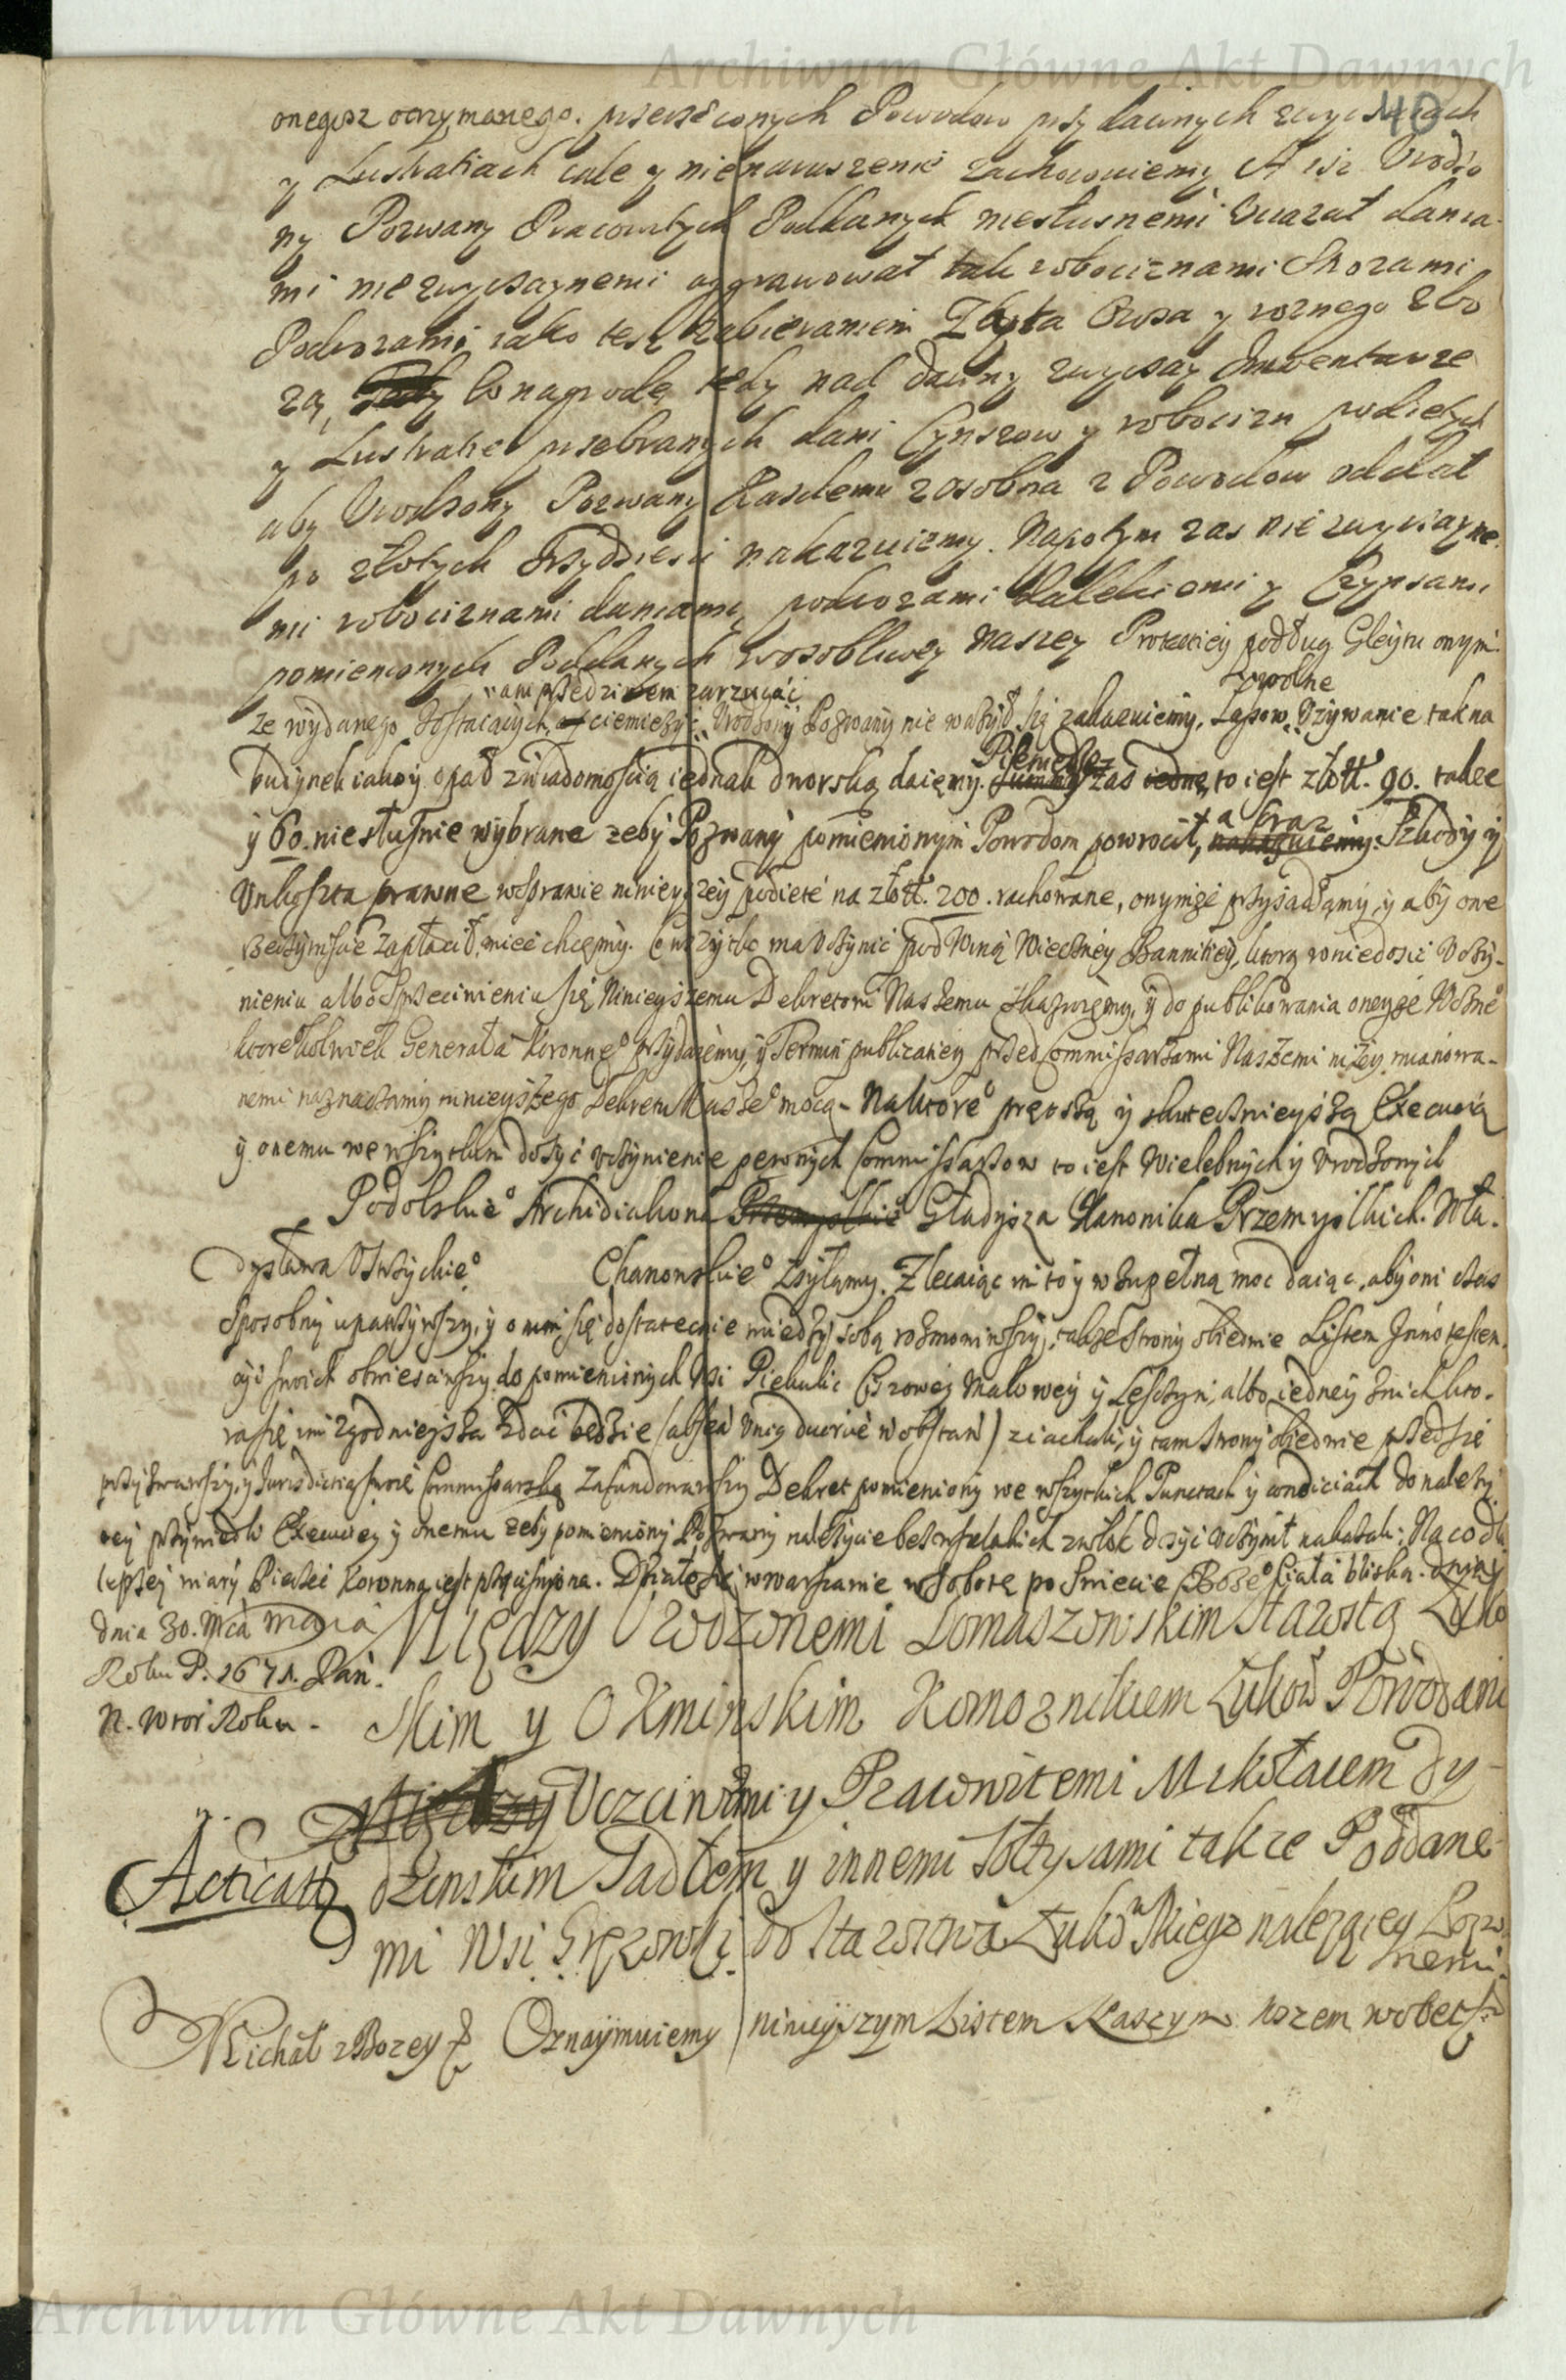 Archiwum Główne Akt Dawnych
40
onegosz otrzymanego. przerzeconych Powodow przy dawnych zwyczaiach
y Lustratiach cale y nienaruszenie zachowuiemy A isz Urodzo
ny Pozwany Pracowitych Poddanych niesłusznemi dania
mi niezwyczaynemi aggrawował tak robociznami Strozami
Podwozami iako tesz zabieraniem Zyta Owsa y roznego zbo
za, w nagrodę tedy nad dawny zwyczay Inwentarze
y Lustratie przebranych dani Czynszow y robocizn podiętych
aby Urodzony Pozwany kazdemu zosobna z Powodow oddał
po złotych Trzydziesci nakazuiemy. Napotym zas niezwyczayne
mi robociznami daniami, podwozami dalekiemi y Czynszami
pomienionych Poddanych wosobliwey naszey Protectiey podług Gleytu onym
ani przedziwem zarzucać wolne
ze wydanego zostaiących, ciemiezyć Urodzony Pozwany nie wazył się zakazuiemy, Lasow Uzywanie tak na
budynek iako y opał zwiadomością iednak dworską daięmy. Pieniędze zas to iest złott. 90. takze
y 60. niesłusznie wybrane zeby Pozwany pomienionym Powodom powrocił, a oraz Szkody y
Unkoszta prawne wsprawie ninieyszey podięte na złott. 200. rachowane, onymże przysądzamy, y aby one
rzeczywiscie zapłacił, mieć chcęmy. Co wszytko ma uczynić pod winą Wieczney Bannitiey, ktorą wniedosić uczy-
nieniu albo sprzeciwieniu się Ninieyszemu Dekretowi Naszemu skazuięmy, y do publikowania oneyże Wozne°
ktore°kolwiek Generała Koronne° przydaięmy, y Termin publicatiey przed Commissarzami Naszemi niżey mianowa-
nemi naznaczamy ninieyszego Dekretu Nasze° mocą - Na ktore° prętszą y skutecznieyszą Executią
y onemu we wszytkim dosyć uczynienie pewnych Commissarzow to iest Wielebnych y Urodzonych
Podolskie° Archidiakona Gładysza Kanonika Przemyslkich. Wła-
dysława Ustrzyckie° Chanowskie° zsyłamy. Zlecaiąc im to y w zupełną moc daiąc, aby oni czas
sposobny upatrzywszy, y o nim się dostatecznie między sobą rozmowiwszy, takze strony obiedwie Listem Innotesten.
cyi swoich obwiesciwszy do pomienionych Wsi Piekulic Cisowey Malowey y Leszczyn, albo iedney znich kto-
ra się im zgodnieysza zdać będzie (absentia unius duorve non obstante) ziachali, y tam strony obiedwie przed się
przyzwawszy, y Jurisdictią swoię Commissarską zafundowawszy Dekret pomieniony we wszytkich Punctach y conditiach do należy.
tey przywiedli Executiey y onemu zeby pomieniony Pozwany należycie bez wszelakich zwłok dosyć uczynił nakazali: Na co dla
lepszey wiary Pieczęć Koronna iest przycisniona. Działo się w Warszawie w Sobotę po Swięcie Boze° Ciała bliską.
dnia 30. Mca Maia
Roku P. 1671. Pań.
N. wtor Roku -
Między Urodzonemi Domaszowskim Starostą Łuko
skim y Okminskim Komornikiem Łukow Powodami
Uczciwemi y Pracowitemi Mikołaiem Dy-
dzinskim Sadłem y innemi Sołtysami takze Poddane-
mi Wsi Gręzowki do Starostwa Łukowskiego nalezącey Pozw
nemi.
Acticatę
Michał z Bozey Oznaymuiemy ninieyszym Listem Naszym wszem wobec
Archiwum Główne Akt Dawnych